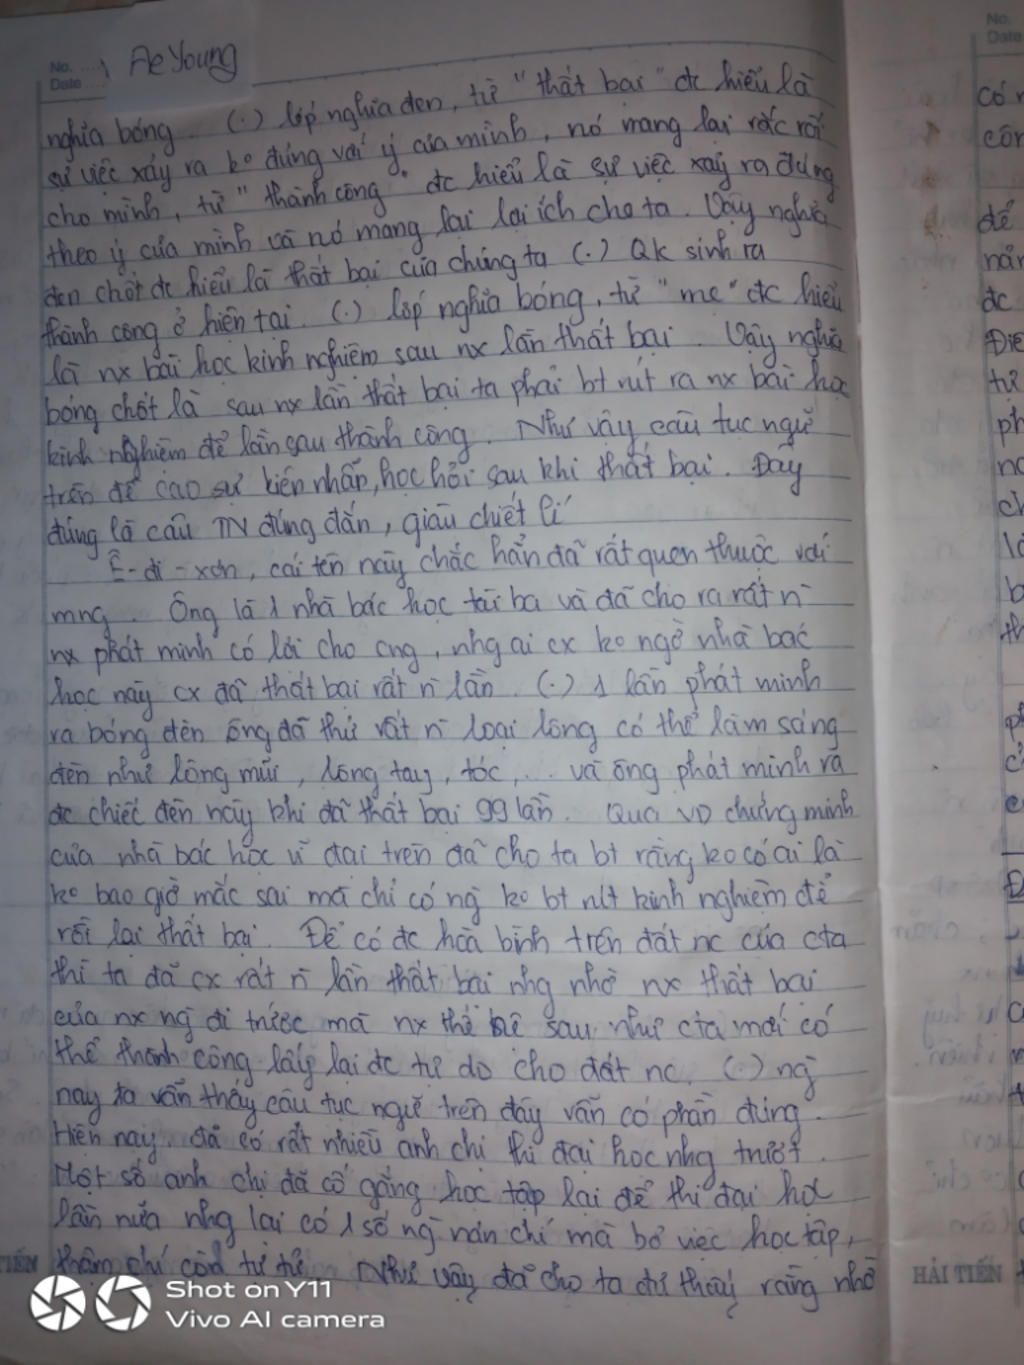 No.
Date
Ae Young
nghĩa bóng. (.) lớp nghĩa đen, từ "thất bại" đc hiểu là
sự việc xảy ra ko đúng với ý của mình, nó mang lại rắc rối
cho mình, từ "thành công" đc hiểu là sự việc xảy ra đúng
theo ý của mình và nó mang lại lợi ích cho ta. Vậy nghĩa
đen chốt đc hiểu là thất bại của chúng ta (.) QK sinh ra
thành công ở hiện tại. (.) lớp nghĩa bóng, từ "mẹ" đc hiểu
là nx bài học kinh nghiệm sau nx lần thất bại. Vậy nghĩa
bóng chốt là sau nx lần thất bại ta phải bt rút ra nx bài học
kinh nghiệm để lần sau thành công. Như vậy câu tục ngữ
trên đề cao sự kiên nhẫn, học hỏi sau khi thất bại. Đây
đúng là câu TN đúng đắn, giàu chiết lí
Ê-đi-xơn, cái tên này chắc hẳn đã rất quen thuộc với
mng. Ông là 1 nhà bác học tài ba và đã cho ra rất n`
nx phát minh có lời cho cng, nhg ai cx ko ngờ nhà bác
học này cx đã thất bại rất n` lần. (.) 1 lần phát minh
ra bóng đèn ông đã thử rất n` loại lông có thể làm sáng
đèn như lông mũi, lông tay, tóc,... và ông phát minh ra
đc chiếc đèn này khi đã thất bại 99 lần. Qua VD chứng minh
của nhà bác học vĩ đại trên đã cho ta bt rằng ko có ai là
ko bao giờ mắc sai mà chỉ có ng` ko bt rút kinh nghiệm để
rồi lại thất bại. Để có đc hòa bình trên đất nc của cta
thì ta đã cx rất n` lần thất bại nhg nhờ nx thất bại
của nx ng` đi trước mà nx thế hệ sau như cta mới có
thể thành công lấy lại đc tự do cho đất nc. (.) ng`
nay ta vẫn thấy câu tục ngữ trên đây vẫn có phần đúng.
Hiện nay, đã có rất nhiều anh chị thi đại học nhg trượt.
Một số anh chị đã cố gắng học tập lại để thi đại học
lần nữa nhg lại có 1 số ng` nản chí mà bỏ việc học tập,
thậm chí còn tự tử. Như vậy đã cho ta thấy rằng nhờ
HẢI TIẾN
Shot on Y11
Vivo AI camera